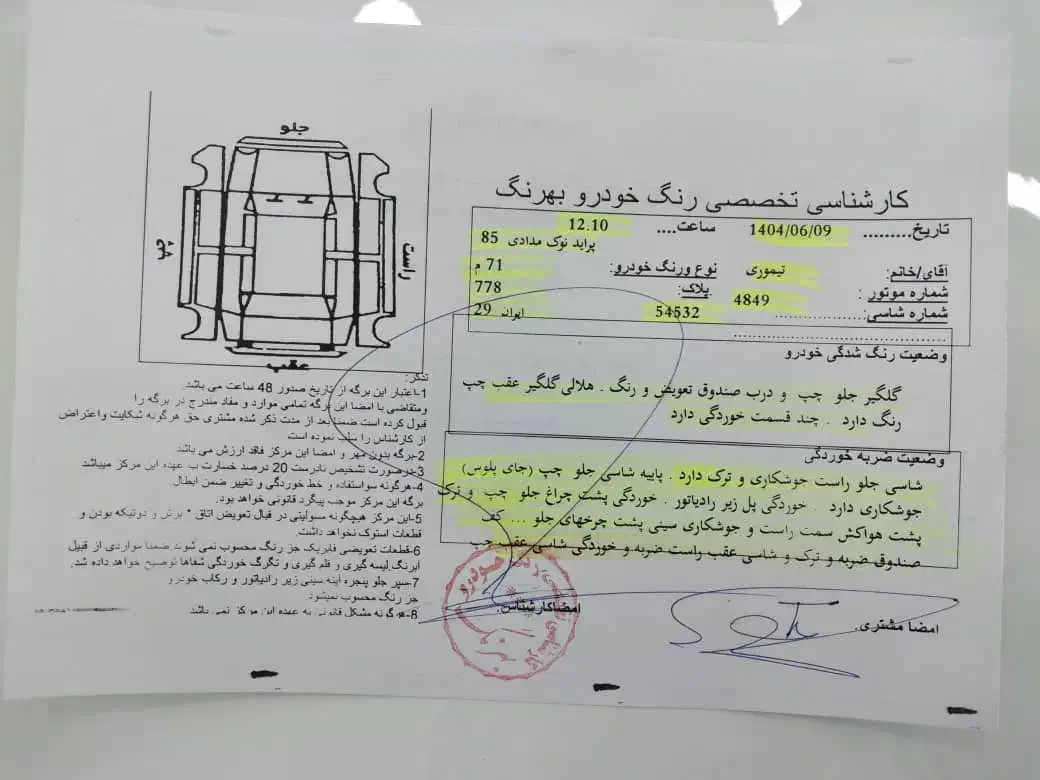 کارشناسی تخصصی رنگ خودرو بهرنگ
تاریخ......... 1404/06/09 ساعت.... 12.10
پراید نوک مدادی 85
آقای/خانم: تیموری نوع ورنگ خودرو: 71 م
شماره موتور : 4849 پلاک: 778
شماره شاسی:.................. 54532 ایران 29
وضعیت رنگ شدگی خودرو
گلگیر جلو چپ و درب صندوق تعویض و رنگ . هلالی گلگیر عقب چپ
رنگ دارد . چند قسمت خوردگی دارد
وضعیت ضربه خوردگی
شاسی جلو راست جوشکاری و ترک دارد . پایپه شاسی جلو چپ (جای پلوس)
جوشکاری دارد . خوردگی پل زیر رادیاتور . خوردگی پشت چراغ جلو چپ و ترک
پشت هواکش سمت راست و جوشکاری سینی پشت چرخهای جلو ... کف
صندوق ضربه و ترک و شاسی عقب راست ضربه و خوردگی شاسی عقب چپ
امضا مشتری.
امضاکارشناس.
جلو
راست
چپ
عقب
تذکر:
1-اعتبار این برگه از تاریخ صدور 48 ساعت می باشد.
ومتقاضی با امضا این برگه تمامی موارد و مفاد مندرج در برگه را
قبول کرده است ضمنا بعد از مدت ذکر شده مشتری حق هرگونه شکایت واعتراض
از کارشناس را سلب نموده است
2-برگه بدون مهر و امضا این مرکز فاقد ارزش می باشد
3-درصورت تشخیص نادرست 20 درصد خسارت ب عهده این مرکز میباشد
4-هرگونه سواستفاده و خط خوردگی و تغییر ضمن ابطال
برگه این مرکز موجب پیگرد قانونی خواهد بود.
5-این مرکز هیچگونه مسولیتی در قبال تعویض اتاق * برش و دوتیکه بودن و
قطعات استوک نخواهد داشت.
6-قطعات تعویضی فابریک جز رنگ محسوب نمی شوند ضمنا مواردی از قبیل
ابرنگ.لیسه گیری و قلم گیری و تگرگ خوردگی شفاها توضیح خواهد داده شد.
7-سپر جلو پنجره آینه سینی زیر رادیاتور و رکاب خودرو
جز رنگ محسوب نمیشود.
8-هرگونه مشکل قانونی به عهده این مرکز نمی باشد